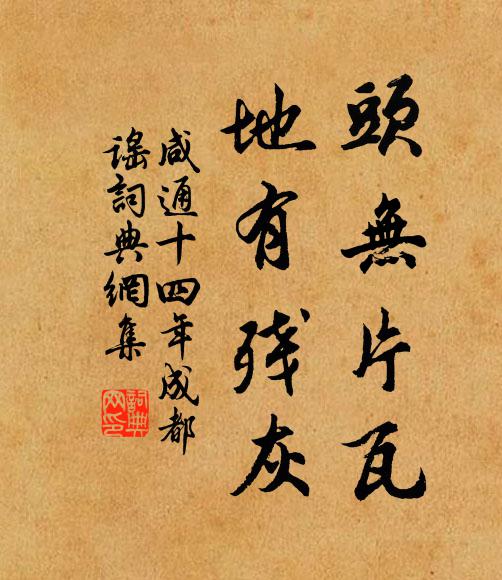 頭無片瓦
地有残灰
咸通十四年成都
謡詞典網集
詞典
网印